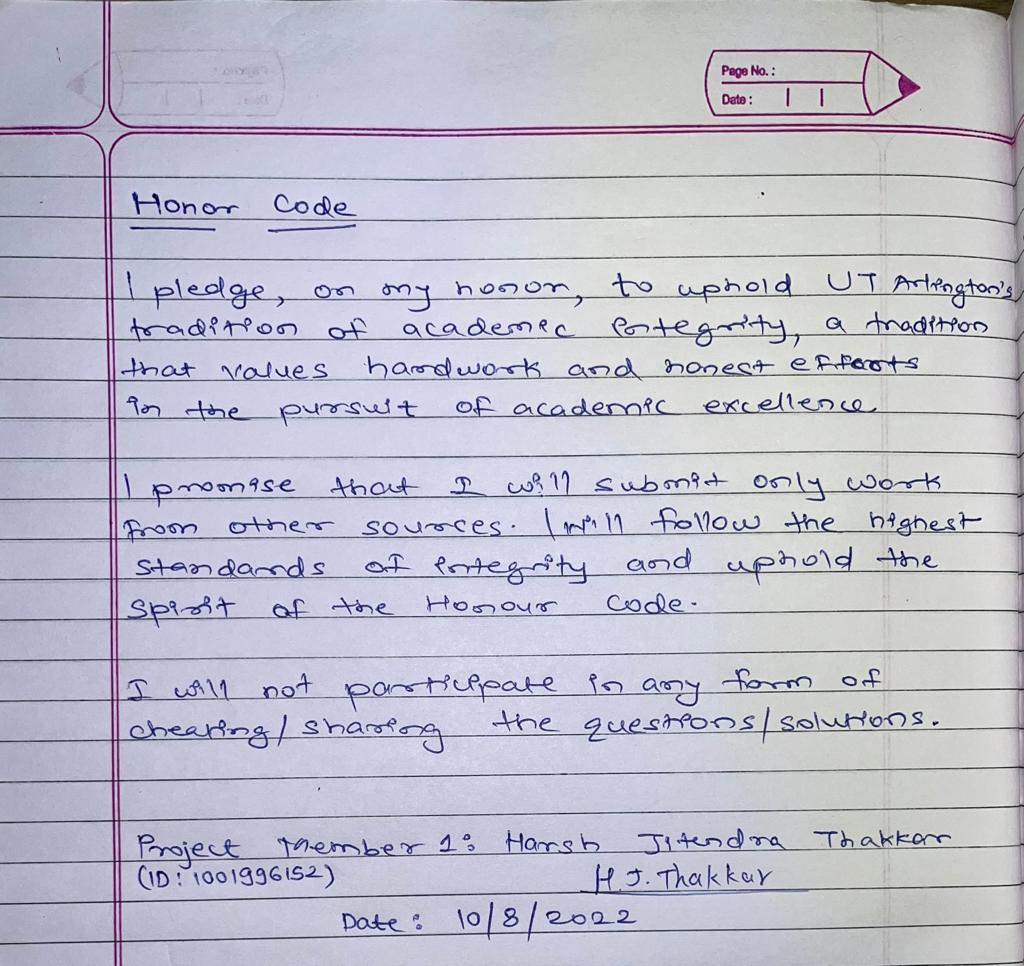 Page No. :
Date :
Honor Code
I pledge, on my honor, to uphold UT Arlington's
tradition of academic integrity, a tradition
that values hardwork and honest efforts
in the pursuit of academic excellence
I promise that I will submit only work
from other sources. I will follow the highest
standards of integrity and uphold the
spirit of the Honour code.
I will not participate in any form of
cheating/sharing the questions/solutions.
Project Member 1: Harsh Jitendra Thakkar
(ID: 1001996152)
H.J. Thakkar
Date: 10/8/2022